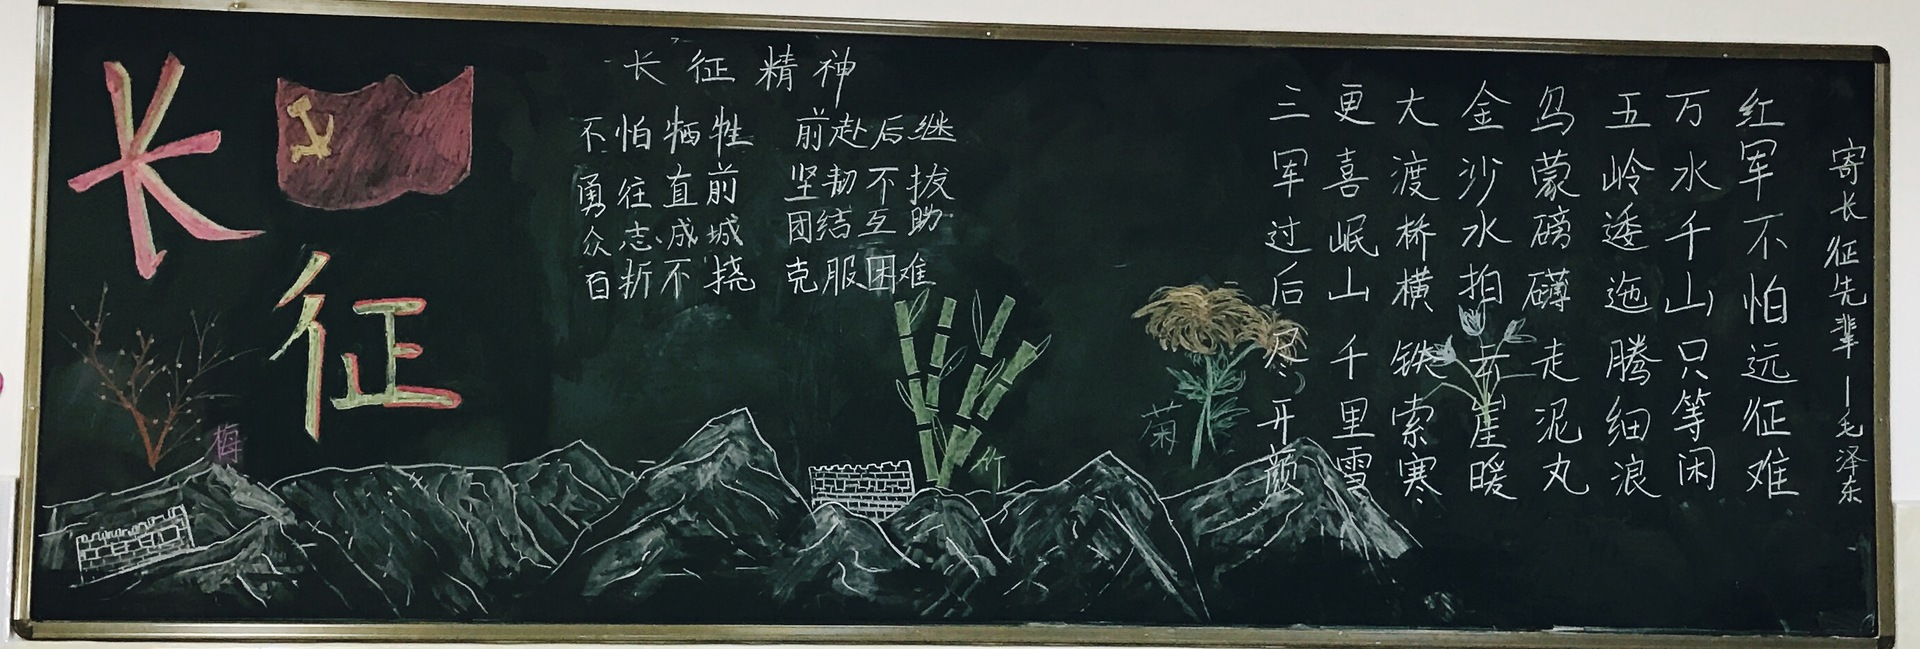 长征
长征精神
不怕牺牲 前赴后继
勇往直前 坚韧不拔
众志成城 团结互助
百折不挠 克服困难
寄长征先辈—毛泽东
红军不怕远征难
万水千山只等闲
五岭逶迤腾细浪
乌蒙磅礴走泥丸
金沙水拍云崖暖
大渡桥横铁索寒
更喜岷山千里雪
三军过后尽开颜
梅
竹
菊